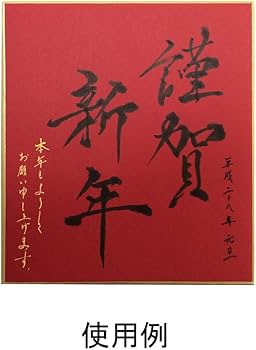 平成二十八年 元旦
謹賀
新年
本年もよろしく
お願い申し上げます。
使用例